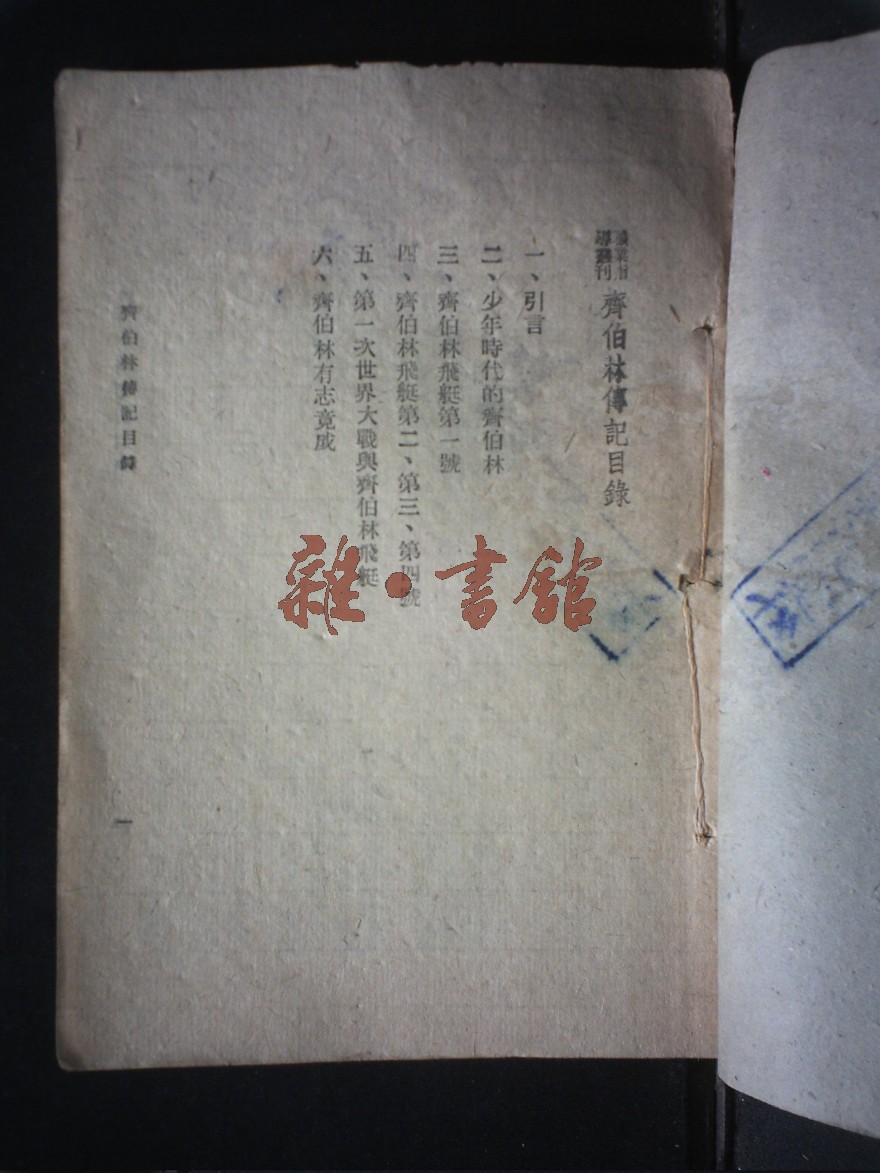 職業指導叢刊 齊伯林傳記目錄
一、引言
二、少年時代的齊伯林
三、齊伯林飛艇第一號
四、齊伯林飛艇第二、第三、第四號
五、第一次世界大戰與齊伯林飛艇
六、齊伯林有志竟成
齊伯林傳記目錄
一
雜·書館